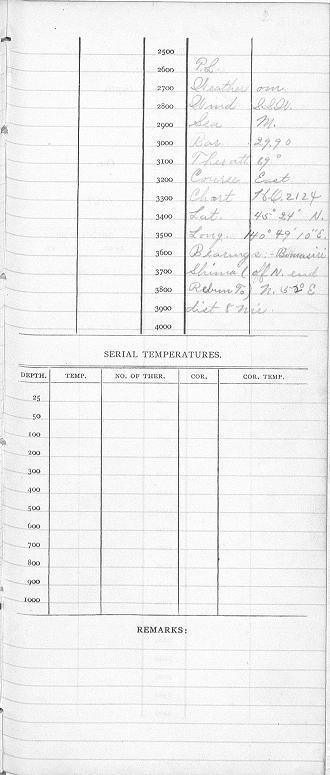 2500
2600 P.L.
2700 Weather om.
2800 Wind S.S.W.
2900 Sea M.
3000 Bar 29.90
3100 Ther att 69°
3200 Course East
3300 Chart H.O. 2124
3400 Lat. 45° 24' N.
3500 Long. 140° 49' 10" E.
3600 Bearings:-
3700 Shima (of N. end
3800 N. 5 E
3900 dist 8 mi.
4000
SERIAL TEMPERATURES.
DEPTH. TEMP. NO. OF THER. COR. COR. TEMP.
25
50
100
200
300
400
500
600
700
800
900
1000
REMARKS: